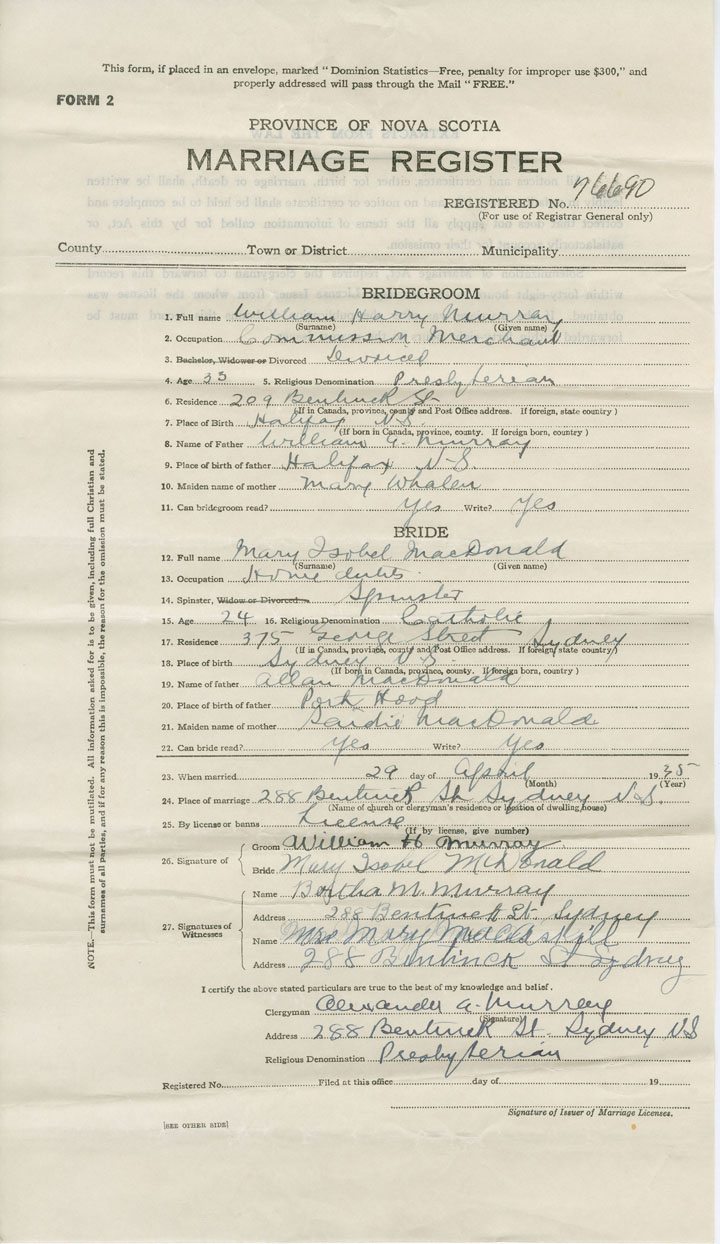 This form, if placed in an envelope, marked "Dominion Statistics—Free, penalty for improper use $300," and
properly addressed will pass through the Mail "FREE."
FORM 2
PROVINCE OF NOVA SCOTIA
MARRIAGE REGISTER
REGISTERED No. 76690
(For use of Registrar General only)
County Town or District Municipality
BRIDEGROOM
1. Full name William Harry Murray
(Surname) (Given name)
2. Occupation Commission Merchant
3. Bachelor, Widower or Divorced Divorced
4. Age 33 5. Religious Denomination Presbyterian
6. Residence 209 Bentinck St
(If in Canada, province, county and Post Office address. If foreign, state country)
7. Place of Birth Halifax N.S.
(If born in Canada, province, county. If foreign born, country)
8. Name of Father William G. Murray
9. Place of birth of father Halifax N-S.
10. Maiden name of mother Mary Whalen
11. Can bridegroom read? Yes Write? Yes
BRIDE
12. Full name Mary Isobel MacDonald
(Surname) (Given name)
13. Occupation Home duties
14. Spinster, Widow or Divorced Spinster
15. Age 24 16. Religious Denomination Catholic
17. Residence 375 George Street Sydney
(If in Canada, province, county and Post Office address. If foreign, state country)
18. Place of birth Sydney N.S.
(If born in Canada, province, county. If foreign born, country)
19. Name of father Allan MacDonald
20. Place of birth of father Port Hood
21. Maiden name of mother Sardie MacDonald
22. Can bride read? Yes Write? Yes
23. When married 29 day of April 1935
(Month) (Year)
24. Place of marriage 288 Bentinck St. Sydney N.S.
(Name of church or clergyman's residence or location of dwelling house)
25. By license or banns License
(If by license, give number)
26. Signature of
Groom William H Murray
Bride Mary Isobel McDonald
27. Signatures of Witnesses
Name Bertha M. Murray
Address 288 Bentinck St. Sydney
Name Mrs Mary
Address 288 Bentinck St Sydney
I certify the above stated particulars are true to the best of my knowledge and belief.
Clergyman Alexander A. Murray
(Signature)
Address 288 Bentinck St. Sydney NS
Religious Denomination Presbyterian
Registered No. Filed at this office day of 19
Signature of Issuer of Marriage Licenses.
[SEE OTHER SIDE]
NOTE.—This form must not be mutilated. All information asked for is to be given, including full Christian and
surnames of all parties, and if for any reason this is impossible, the reason for the omission must be stated.